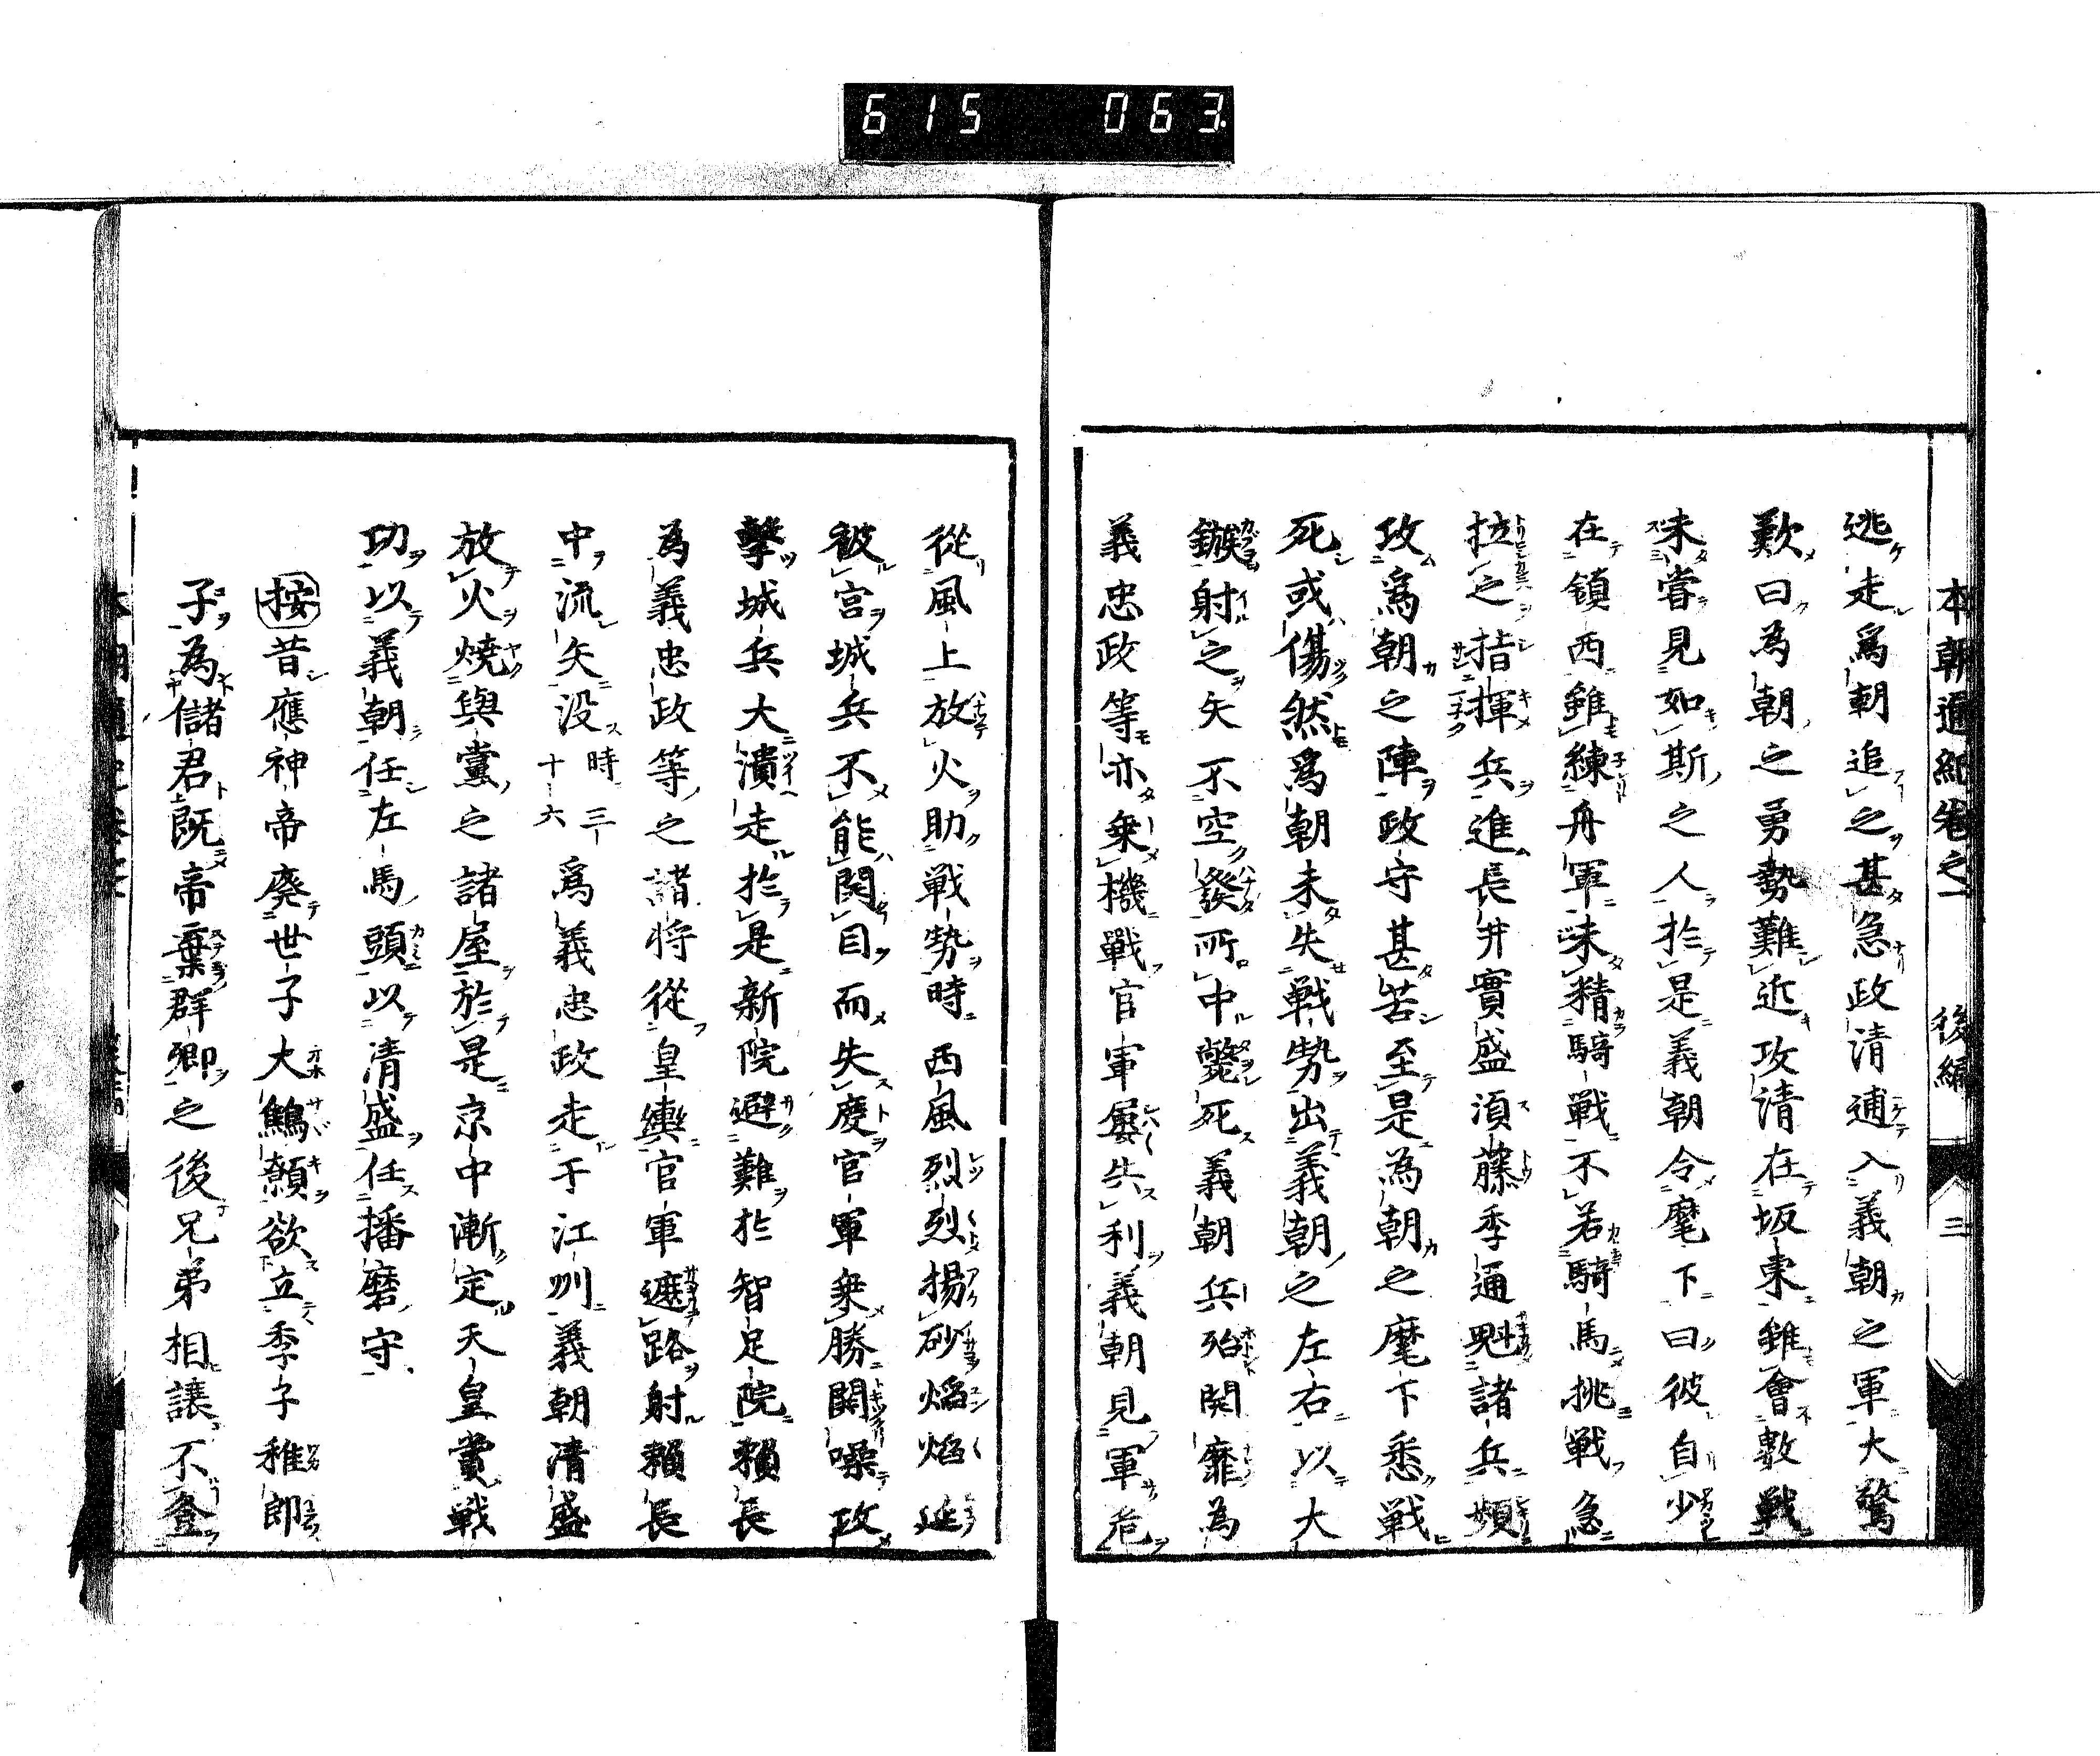 615 063
本朝通紀卷之一 後編 三
逃走爲朝追之甚急政清逋入義朝之軍大驚
歎曰為朝之勇勢難近攻清在坂東雖會數戰
未嘗見如斯之人於是義朝令麾下曰彼自少
在鎮西雖練舟軍未精騎戰不若騎馬挑戦急
拉之指揮兵進長井實盛須藤季通魁諸兵頻
攻爲朝之陣政守甚苦至是為朝之麾下悉戦
死或傷然爲朝未失戦勢出義朝之左右以大
鏃射之矢不空發所中斃死義朝兵殆開靡為
義忠政等亦乗機戰官軍屢失利義朝見軍危
從風上放火助戦勢時西風烈烈揚砂焔焔延
彼宮城兵不能開目而失度官軍乗勝鬨噪攻
擊城兵大潰走於是新院避難於智足院賴長
為義忠政等之諸将從皇輿官軍遮路射賴長
中流矢没時三十六爲義忠政走于江州義朝清盛
放火燒與黨之諸屋於是京中漸定天皇賞戦
功以義朝任左馬頭以清盛任播磨守
按昔應神帝廃世子大鷦鷯欲立季子稚郎
子為儲君既帝棄群卿之後兄弟相讓不登